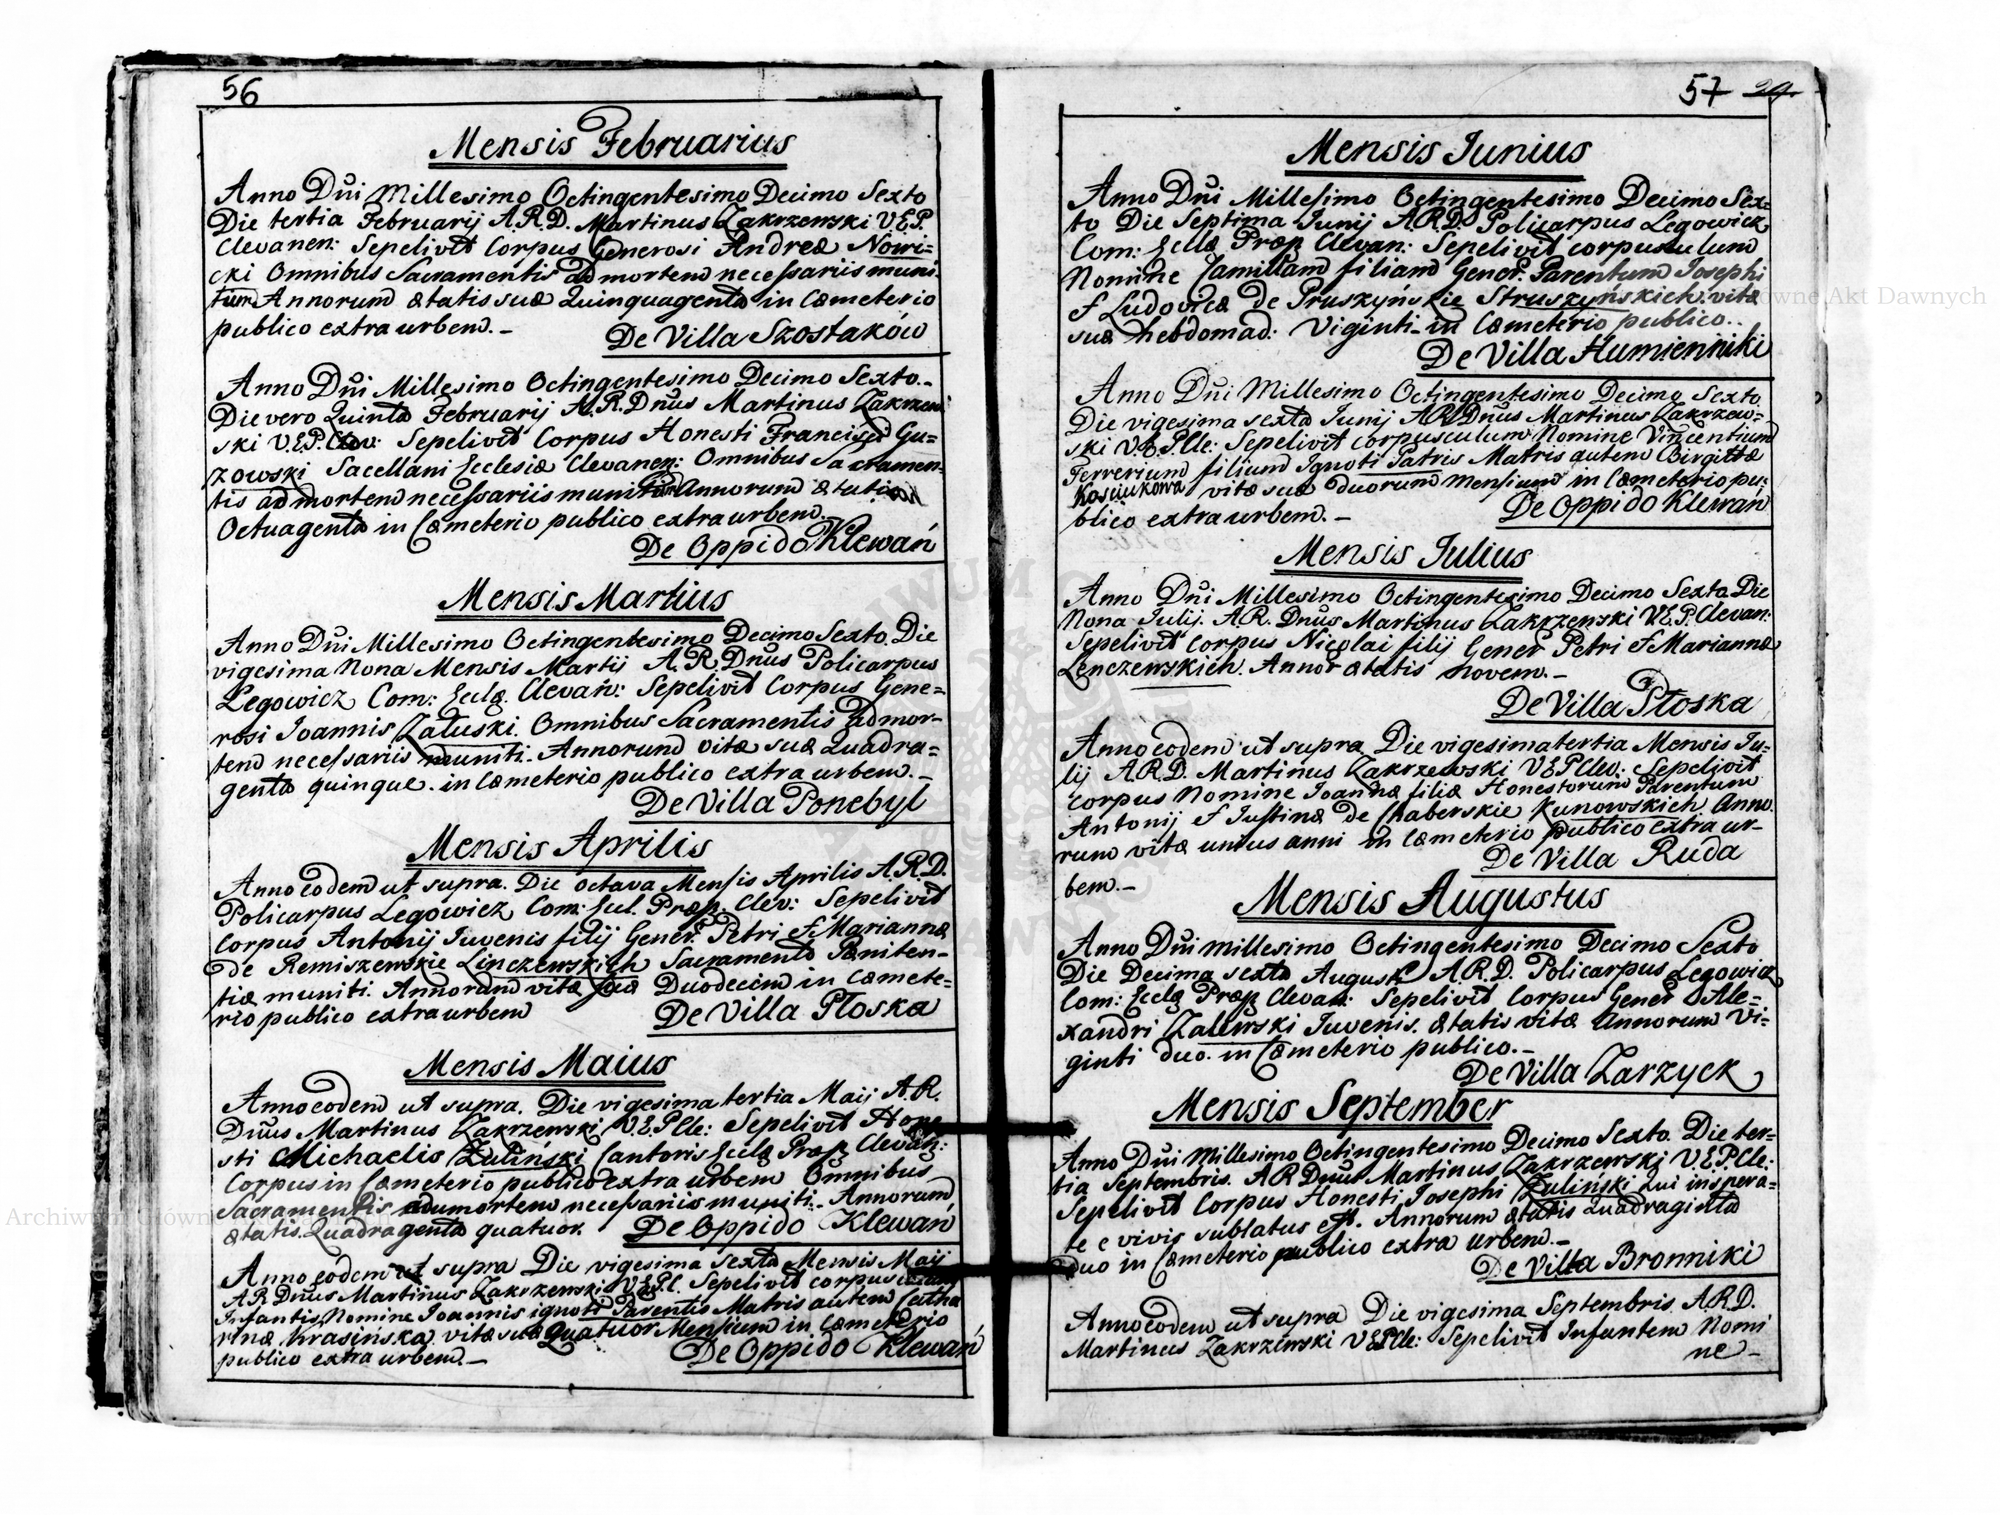 56
Mensis Februarius
Anno Dńi Millesimo Octingentesimo Decimo Sexto
Die tertia Februarij A.R.D. Martinus Zakrzewski V.E.P.
Clevanen: Sepelivit Corpus Generosi Andreæ Nowi-
cki Omnibus Sacramentis ad mortem necessariis muni-
tum Annorum ætatis suæ Quinquagenta in Cæmeterio
publico extra urbem. -
De Villa Szostaków
Anno Dńi Millesimo Octingentesimo Decimo Sexto.-
Die vero Quinta Februarij A.R.Dnus Martinus Zakrzew-
ski V.E.P. Clev: Sepelivit Corpus Honesti Francisci Gu-
zowski Sacellani Ecclesiæ Clevanen: Omnibus Sacramen-
tis ad mortem necessariis munitum Annorum ætatis
Octuagenta in Cæmeterio publico extra urbem.
De Oppido Klewań
Mensis Martius
Anno Dńi Millesimo Octingentesimo Decimo Sexto. Die
vigesima Nona Mensis Martij A.R. Dnus Policarpus
Legowicz Com: Eclæ. Clevań: Sepelivit Corpus Gene-
rosi Joannis Załuski. Omnibus Sacramentis ad mor-
tem necessariis muniti. Annorum vitæ suæ Quadra-
genta quinque. in Cæmeterio publico extra urbem. -
De Villa Ponebyl
Mensis Aprilis
Anno eodem ut supra. Die octava Mensis Aprilis A.R.D.
Policarpus Legowicz Com: Ecl. Præp. Clev: Sepelivit
Corpus Antonij Juvenis filij Gener. Petri & Mariannæ
de Remiszewskie Linczewskich Sacramento Pæniten-
tiæ muniti. Annorum vitæ suæ Duodecim in Cæmete-
rio publico extra urbem
De Villa Płoska
Mensis Maius
Anno eodem ut supra. Die vigesima tertia Maij A.R.
Dnus Martinus Zakrzewski V.E.P.Cle: Sepelivit Hone-
sti Michaelis Zuliński Cantoris Eclæ Præp. Clevan:
Corpus in Cæmeterio publico extra urbem Omnibus
Sacramentis ad mortem necessariis muniti. Annorum
ætatis. Quadragenta quatuor.
De Oppido Klewań
Anno eodem ut supra Die vigesima sexta Mensis Maij
A.R.Dnus Martinus Zakrzewski V.E.P.C. Sepelivit corpusculum
Infantis Nomine Joannis ignoti Parentis Matris autem Catha
rinæ Krasińska vitæ suæ quatuor Mensium in Cæmeterio
publico extra urbem. -
De Oppido Klewań
57 29.
Mensis Junius
Anno Dńi Millesimo Octingentesimo Decimo Sex-
to Die Septima Junij A.R.D. Policarpus Legowicz
Com: Eclæ Præp Clevan: Sepelivit corpusculum
Nomine Camillam filiam Gener. Parentum Josephi
& Ludovicæ de Pruszyńskie Struszyńskich. vitæ
suæ hebdomad: Viginti in Cæmeterio publico..
De Villa Humienniki
Anno Dńi Millesimo Octingentesimo Decimo Sexto
Die vigesima sexta Junij A.R.Dnus Martinus Zakrzew-
ski V.E.P.Cle: Sepelivit corpusculum Nomine Vincentium
Ferrerium filium Ignoti Patris Matris autem Birgittæ
Kosciukowa vitæ suæ duorum Mensium in Cæmeterio pu-
blico extra urbem. -
De Oppido Klewań
Mensis Julius
Anno Dńi Millesimo Octingentesimo Decimo Sexto Die
Nona Julij. A.R. Dnus Martinus Zakrzewski V.E.P. Clevan:
Sepelivit Corpus Nicolai filij Gener Petri & Mariannæ
Lenczewskich. Annor ætatis novem. -
De Villa Płoska
Anno eodem ut supra Die vigesima tertia Mensis Ju-
lij A.R.D. Martinus Zakrzewski V.E.P.Clev: Sepelivit
corpus Nomine Joannæ filiæ Honestorum Parentum
Antonij & Justinæ de Chaberskie Kunowskich Anno
rum vitæ unius anni in Cæmeterio publico extra ur-
bem. -
De Villa Ruda
Mensis Augustus
Anno Dńi Millesimo Octingentesimo Decimo Sexto
Die Decima sexta Augusti A.R.D. Policarpus Legowicz
Com: Eclæ Præp Clevan: Sepelivit Corpus Gener Ale-
xandri Zalewski Juvenis. ætatis vitæ Annorum Vi-
ginti duo. in Cæmeterio publico. -
De Villa Zarzyck
Mensis September
Anno Dńi Millesimo Octingentesimo Decimo Sexto. Die ter-
tia Septembris. A.R.Dnus Martinus Zakrzewski V.E.P.Cle:
Sepelivit Corpus Honesti Josephi Zuliński Qui inspera-
te e vivis sublatus est. Annorum ætatis Quadraginta
duo in Cæmeterio publico extra urbem. -
De Villa Bronniki
Anno eodem ut supra Die vigesima Septembris. A.R.D.
Martinus Zakrzewski V.E.P.Cle: Sepelivit Infantem Nomi
ne -
Archiwum Główne Akt Dawnych